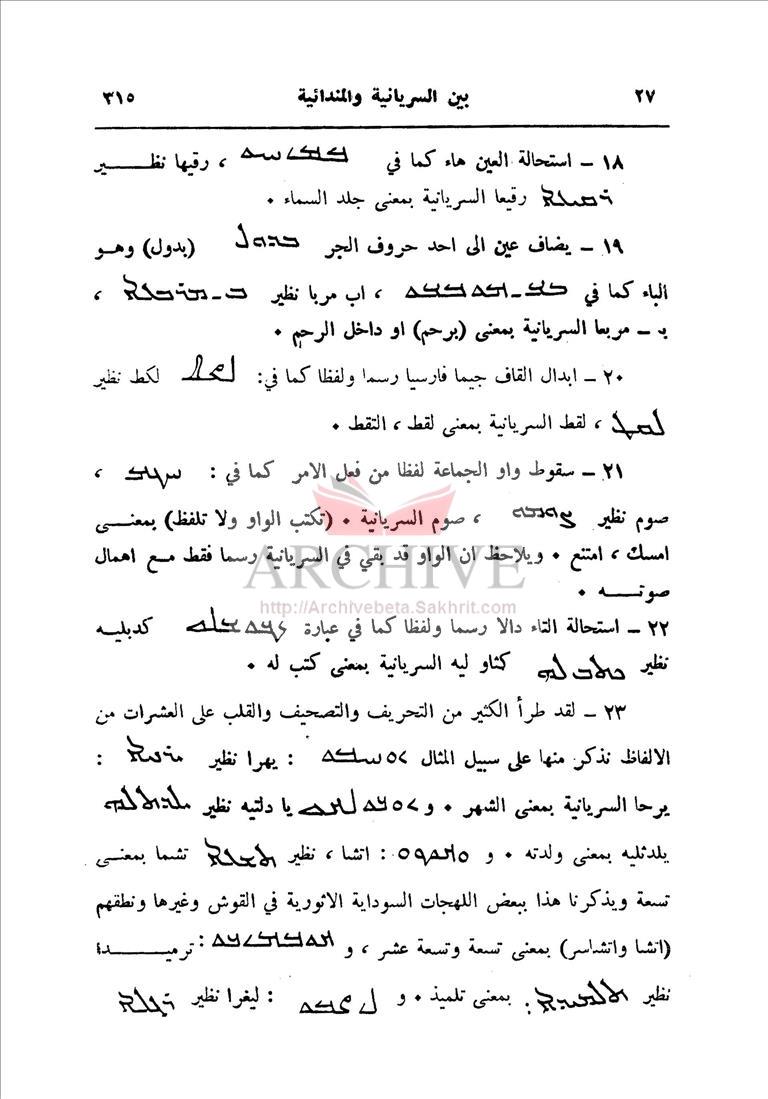 ٢٧ بين السريانية والمندائية ٣١٥
١٨ ــ استحالة العين هاء كما في ، رقيها نظـــير
ܪܩܝܥܐ رقيعا السريانية بمعنى جلد السماء ٠
١٩ ــ يضاف عين الى احد حروف الجر ܒܕܘܠ (بدول) وهــو
الباء كما في ، اب مربا نظير ܒ ــ ܡܪܒܥܐ ،
بـ ــ مربعا السريانية بمعنى (برحم) او داخل الرحم ٠
٢٠ ــ ابدال القاف جيما فارسيا رسما ولفظا كما في : لكط نظير
ܠܩܛ ، لقط السريانية بمعنى لقط ، التقط ٠
٢١ ــ سقوط واو الجماعة لفظا من فعل الامر كما في : ،
صوم نظير ܨܘܡܘ ، صوم السريانية ٠ (تكتب الواو ولا تلفظ) بمعنــى
امسك ، امتنع ٠ ويلاحظ ان الواو قد بقي في السريانية رسما فقط مــع اهمال
صوتــــه ٠
ARCHIVE
http://Archivebeta.Sakhrit.com
٢٢ ــ استحالة التاء دالا رسما ولفظا كما في عبارة كدبليــه
نظير ܟܬܒ ܠܗ كثاو ليه السريانية بمعنى كتب له ٠
٢٣ ــ لقد طرأ الكثير من التحريف والتصحيف والقلب على العشرات من
الالفاظ نذكر منها على سبيل المثال : يهرا نظير ܝܪܚܐ :
يرحا السريانية بمعنى الشهر ٠ و يا دلتيه نظير ܝܠܕܬܠܗ
يلدثليه بمعنى ولدته ٠ و : اتشا ، نظير ܬܫܥܐ تشما بمعنــى
تسعة ويذكرنا هذا ببعض اللهجات السوداية الاثورية في القوش وغيرها ونطقهم
(اتشا واتشاسر) بمعنى تسعة وتسعة عشر ، و : ترميــــدة
نظير ܬܠܡܝܕܐ : بمعنى تلميذ ٠ و : ليغرا نظير ܪܓܠܐ